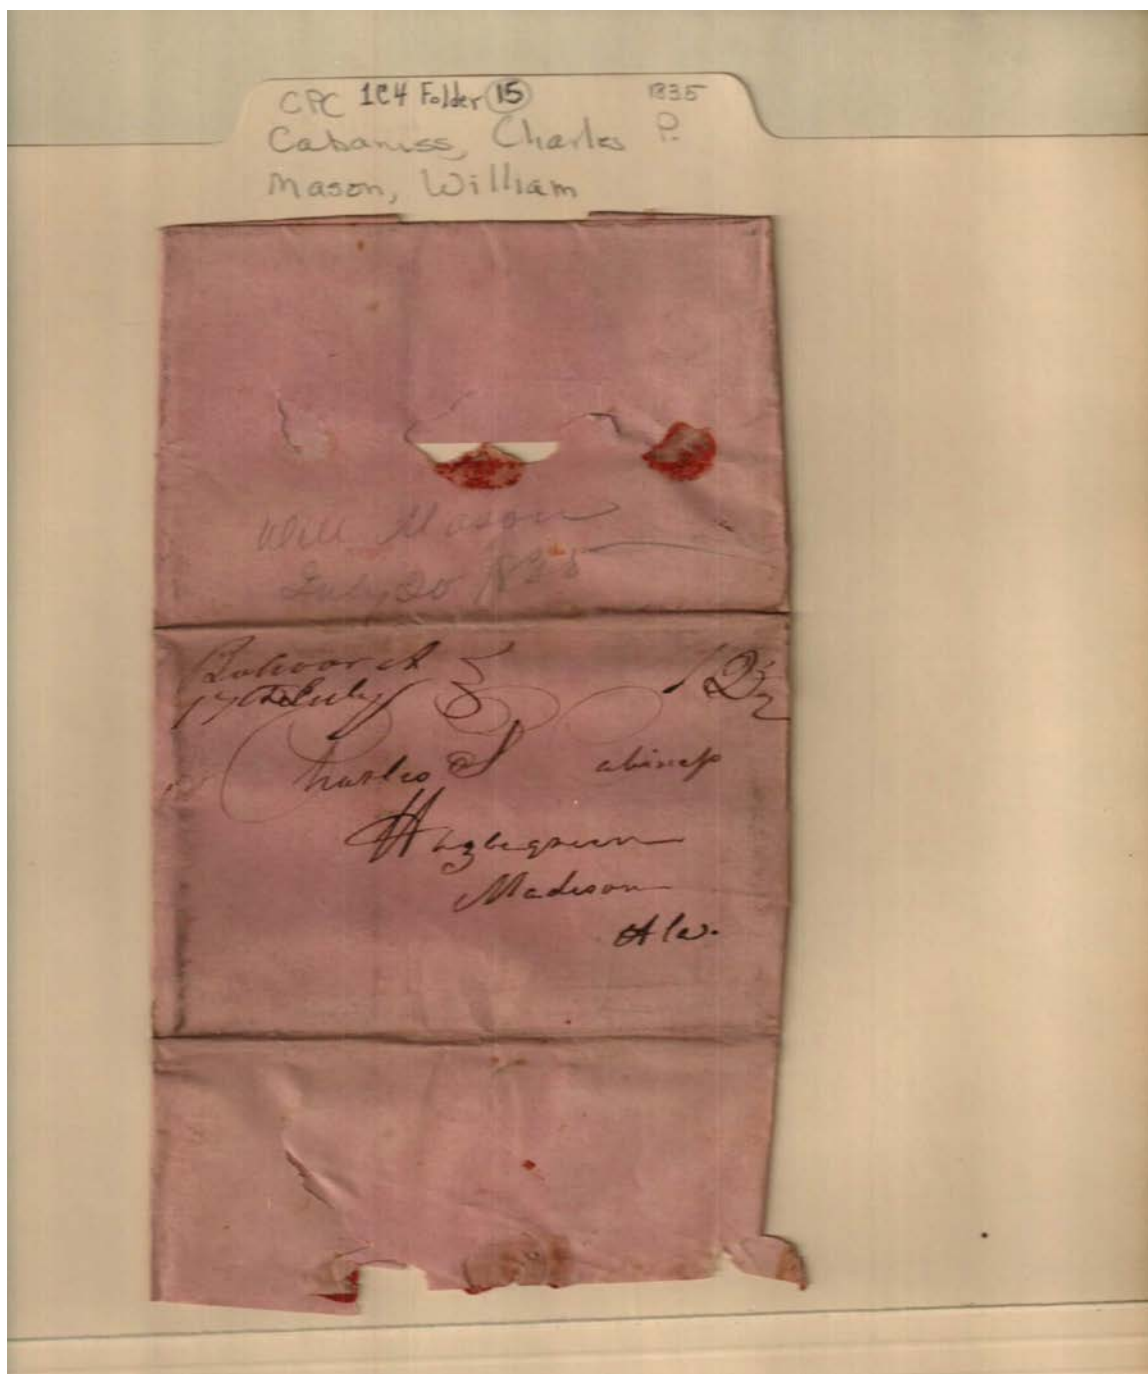 CPC 1C4 Folder 15 1835
Cabaniss, Charles P.
Mason, William
Will Mason
July 20 1835
17th July 12½
Charles P Cabiness
Hazlegreen
Madison
Ala.